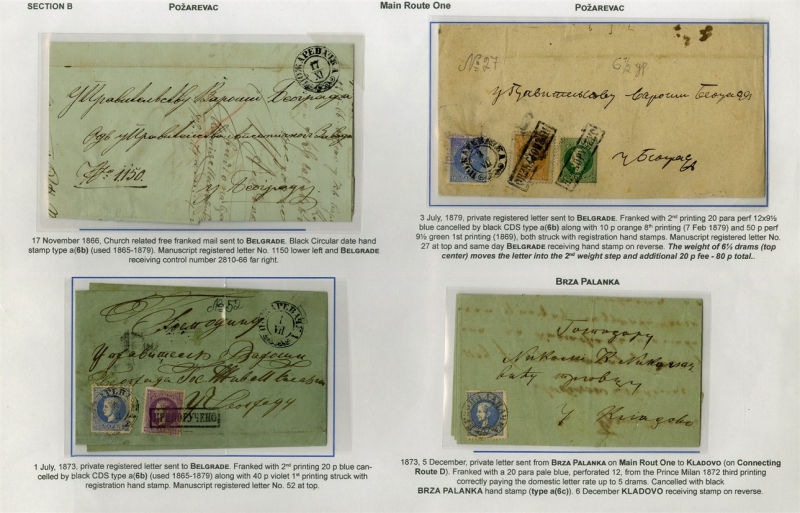 SECTION B
POŽAREVAC
Main Route One
POŽAREVAC
ПОЖАРЕВАЧКА
17
XI
У Правитељству Вароши Београда
№ 1150.
у Београду
17 November 1866, Church related free franked mail sent to BELGRADE. Black Circular date hand
stamp type a(6b) (used 1865-1879). Manuscript registered letter No. 1150 lower left and BELGRADE
receiving control number 2810-66 far right.
№ 27
6½ др.
Вароши Београд
у Београд
ПРЕПОРУЧЕНО
3 July, 1879, private registered letter sent to BELGRADE. Franked with 2nd printing 20 para perf 12x9½
blue cancelled by black CDS type a(6b) along with 10 p orange 8th printing (7 Feb 1879) and 50 p perf
9½ green 1st printing (1869), both struck with registration hand stamps. Manuscript registered letter No.
27 at top and same day BELGRADE receiving hand stamp on reverse. The weight of 6½ drams (top
center) moves the letter into the 2nd weight step and additional 20 p fee - 80 p total..
№ 52
1
VII
Господину
Вароши
у Београду
ПРЕПОРУЧЕНО
1 July, 1873, private registered letter sent to BELGRADE. Franked with 2nd printing 20 p blue can-
celled by black CDS type a(6b) (used 1865-1879) along with 40 p violet 1st printing struck with
registration hand stamp. Manuscript registered letter No. 52 at top.
BRZA PALANKA
Господару
Николи
у Кладово
1873, 5 December, private letter sent from BRZA PALANKA on Main Rout One to KLADOVO (on Connecting
Route D). Franked with a 20 para pale blue, perforated 12, from the Prince Milan 1872 third printing
correctly paying the domestic letter rate up to 5 drams. Cancelled with black
BRZA PALANKA hand stamp (type a(6c)). 6 December KLADOVO receiving stamp on reverse.